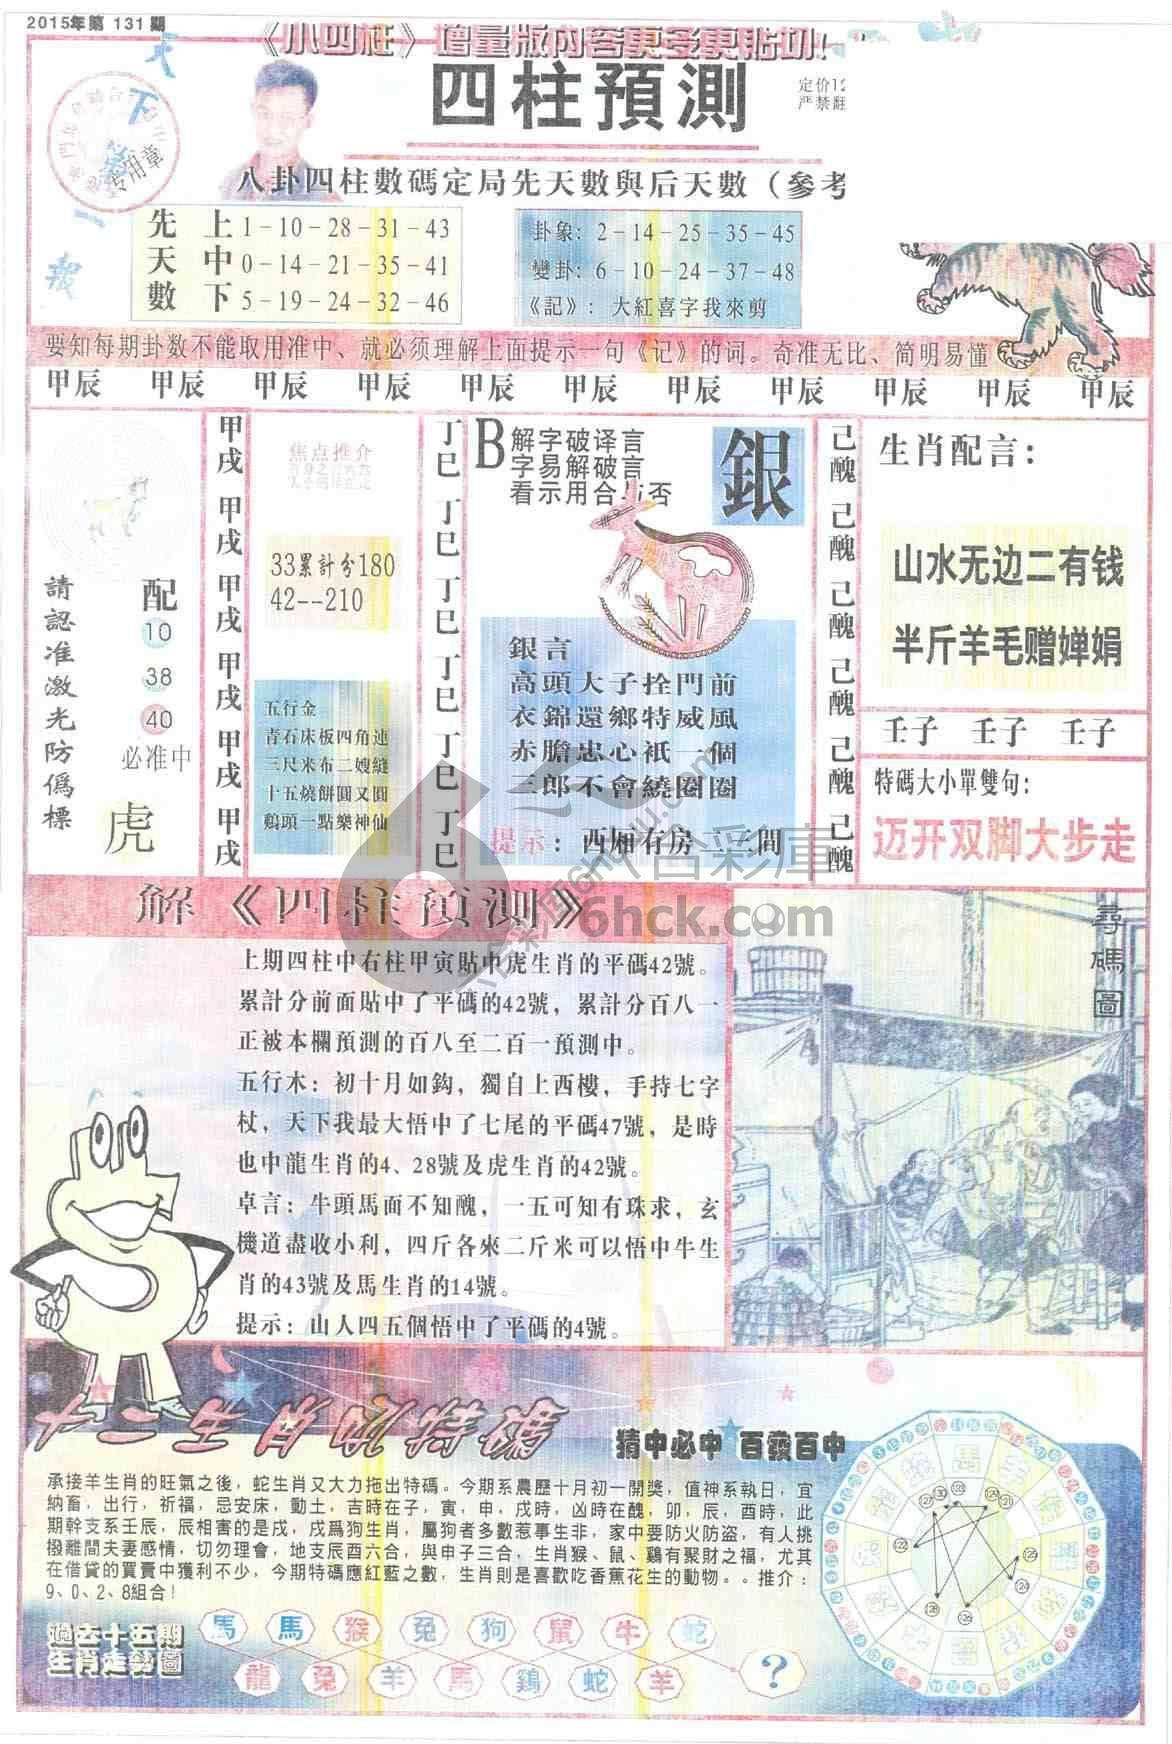 2015年第 131 期
《小四柱》增量版内容更多更貼切!
天
下
一
报
专用章
四柱預測
定价12
严禁翻
八卦四柱數碼定局先天數與后天數（參考
先 上 1－10－28－31－43
天 中 0－14－21－35－41
數 下 5－19－24－32－46
卦象: 2－14－25－35－45
變卦: 6－10－24－37－48
《記》: 大紅喜字我來剪
要知每期卦数不能取用准中、就必须理解上面提示一句《记》的词。奇准无比、简明易懂
甲辰 甲辰 甲辰 甲辰 甲辰 甲辰 甲辰 甲辰 甲辰 甲辰 甲辰
請認准激光防僞標
配
10
38
40
必准中
虎
甲戌 甲戌 甲戌 甲戌 甲戌 甲戌
焦点推介
33累計分180
42--210
五行金
青石床板四角連
三尺米布二嫂縫
十五燒餅圓又圓
鷄頭一點樂神仙
丁巳 丁巳 丁巳 丁巳 丁巳 丁巳
B 解字破译言
字易解破言
看示用合与否
銀
銀言
高頭大子拴門前
衣錦還鄉特威風
赤膽忠心祇一個
三郎不會繞圈圈
提示: 西厢有房二三間
己醜 己醜 己醜 己醜 己醜 己醜
生肖配言:
山水无边二有钱
半斤羊毛赠婵娟
壬子 壬子 壬子
特碼大小單雙句:
迈开双脚大步走
六合彩庫
6hck.com
解《四柱預測》
上期四柱中右柱甲寅貼中虎生肖的平碼42號。
累計分前面貼中了平碼的42號，累計分百八一
正被本欄預測的百八至二百一預測中。
五行木: 初十月如鈎，獨自上西樓，手持七字
杖，天下我最大悟中了七尾的平碼47號，是時
也中龍生肖的4、28號及虎生肖的42號。
卓言: 牛頭馬面不知醜，一五可知有珠求，玄
機道盡收小利，四斤各來二斤米可以悟中牛生
肖的43號及馬生肖的14號。
提示: 山人四五個悟中了平碼的4號。
尋碼圖
猜中必中 百發百中
承接羊生肖的旺氣之後，蛇生肖又大力拖出特碼。今期系農歷十月初一開獎，值神系執日，宜
納畜，出行，祈福，忌安床，動土，吉時在子，寅，申，戌時，凶時在醜，卯，辰，酉時，此
期幹支系壬辰，辰相害的是戌，戌爲狗生肖，屬狗者多數惹事生非，家中要防火防盗，有人挑
撥離間夫妻感情，切勿理會，地支辰酉六合，與申子三合，生肖猴、鼠、鷄有聚財之福，尤其
在借貸的買賣中獲利不少，今期特碼應紅藍之數，生肖則是喜歡吃香蕉花生的動物。。推介:
9、0、2、8組合!
過去十五期
生肖走勢圖
馬 馬 猴 兔 狗 鼠 牛 蛇
龍 兔 羊 馬 鷄 蛇 羊 ?